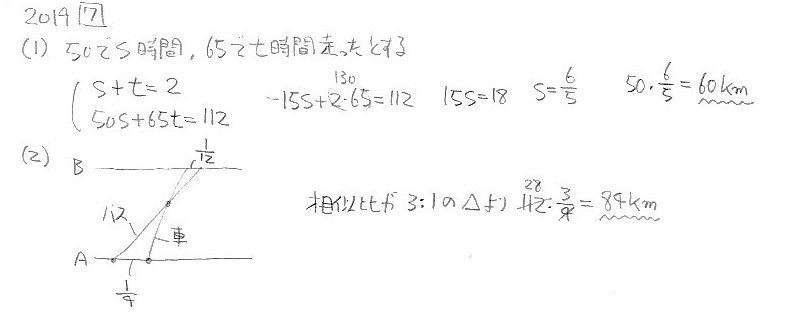 2019 7
(1) 50でS時間, 65でt時間走ったとする
S+t=2
50S+65t=112
-15S+2·65=112 130
15S=18
S=6/5
50·6/5=60km
(2)
B 1/12
バス
車
A
1/4
相似比が3:1の△より 112·3/4=84km 28